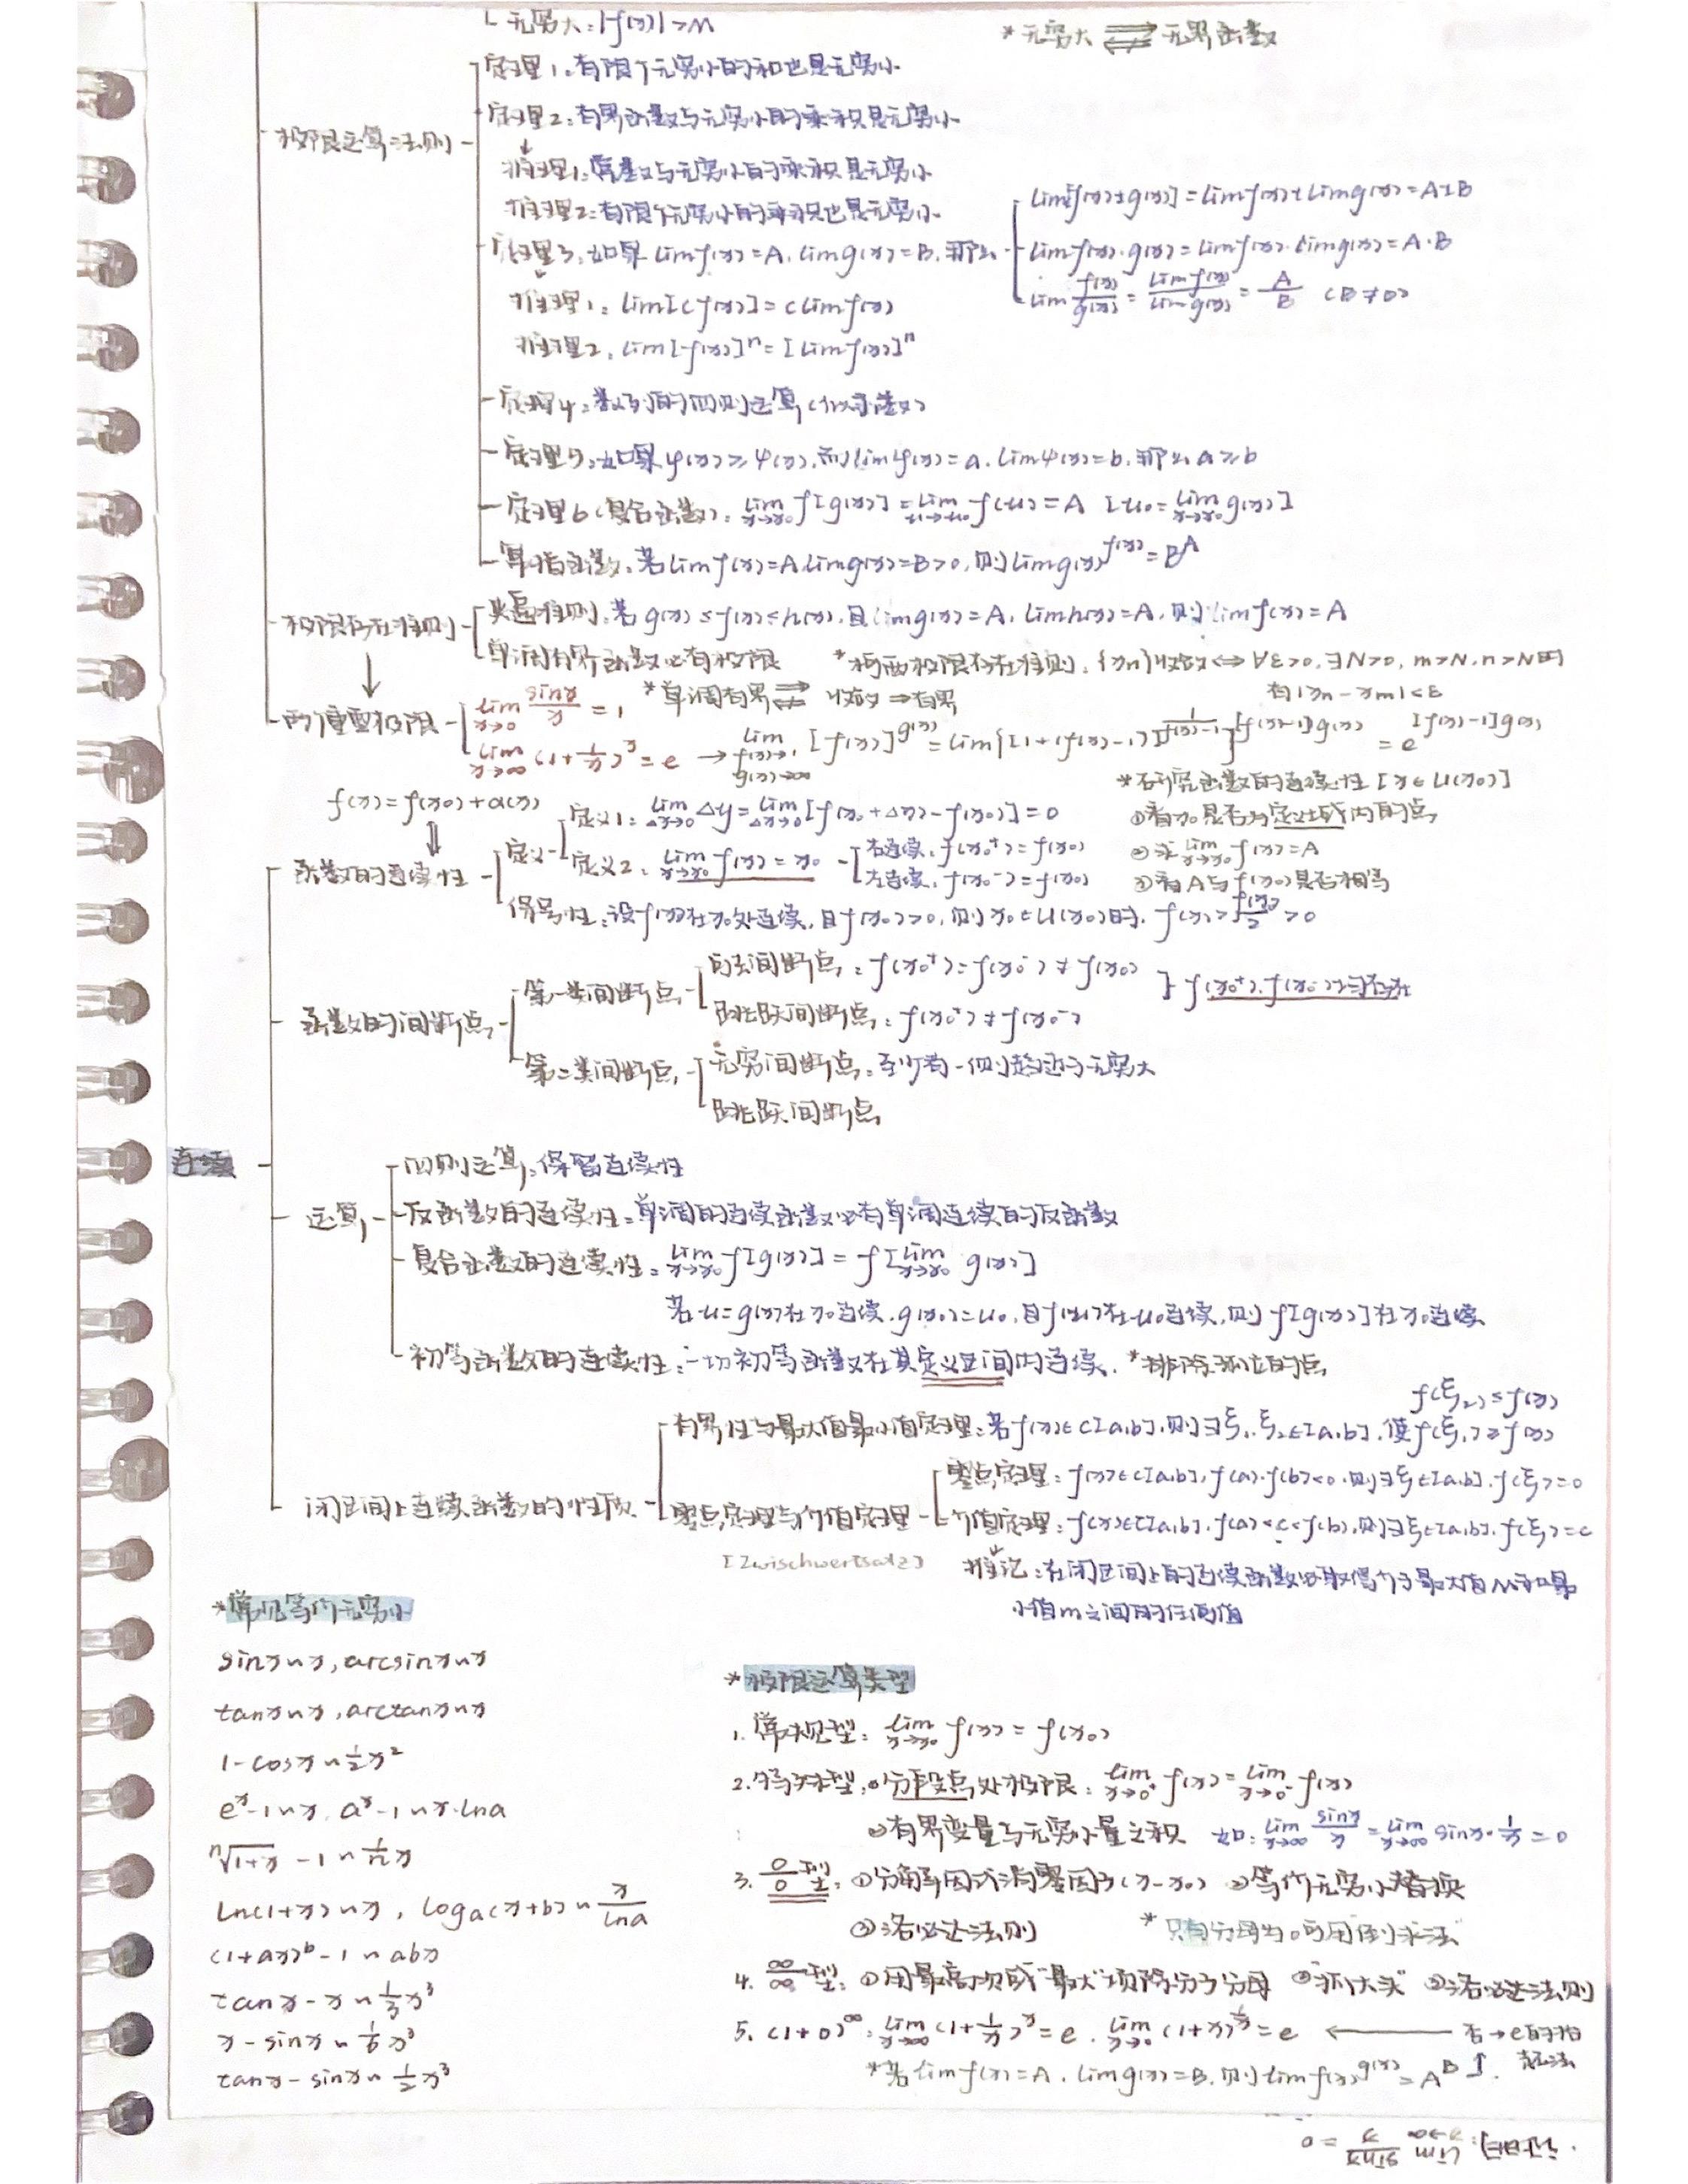 无穷大：|f(x)|>M
*无穷大 ⇌ 无界函数
极限运算法则
定理1：有限个无穷小的和也是无穷小
定理2：有界函数与无穷小的乘积是无穷小
推理1：常数与无穷小的乘积是无穷小
推理2：有限个无穷小的乘积也是无穷小
定理3：如果 lim f(x)=A, lim g(x)=B, 那么
lim[f(x)±g(x)] = lim f(x) ± lim g(x) = A±B
lim f(x)·g(x) = lim f(x)·lim g(x) = A·B
lim f(x)/g(x) = lim f(x)/lim g(x) = A/B (B≠0)
推理1：lim[cf(x)] = c lim f(x)
推理2：lim[f(x)]^n = [lim f(x)]^n
定理4：数列的四则运算
定理5：如果 φ(x) ≥ ψ(x), 而 lim φ(x)=a, lim ψ(x)=b, 那么 a≥b
定理6（复合函数）：lim x→x₀ f[g(x)] = lim u→u₀ f(u) = A [u₀ = lim x→x₀ g(x)]
幂指函数：若 lim f(x)=A, lim g(x)=B>0, 则 lim g(x)^f(x) = B^A
极限存在准则
夹逼准则：若 g(x) ≤ f(x) ≤ h(x), 且 lim g(x)=A, lim h(x)=A, 则 lim f(x)=A
单调有界函数必有极限 *柯西极限存在准则：{xn}收敛 ⇔ ∀ε>0, ∃N>0, m>N, n>N时
有|xn - xm|<ε
*单调有界 ⇌ 收敛 ⇒ 有界
两个重要极限
lim x→0 sinx/x = 1
lim x→∞ (1+1/x)^x = e → lim f(x)→1 g(x)→∞ [f(x)]^g(x) = lim{[1+(f(x)-1)]^(1/(f(x)-1))}^[f(x)-1]g(x) = e^[f(x)-1]g(x)
*研究函数的连续性 [x∈U(x₀)]
①看x₀是否为定义域内的点
②求 lim x→x₀ f(x)=A
③看A与f(x₀)是否相等
f(x) = f(x₀)+α(x)
连续
函数的连续性
定义
定义1：lim Δx→0 Δy = lim Δx→0 [f(x₀+Δx) - f(x₀)] = 0
定义2：lim x→x₀ f(x) = x₀
右连续：f(x₀⁺) = f(x₀)
左连续：f(x₀⁻) = f(x₀)
保号性：设f(x)在x₀处连续, 且f(x₀)>0, 则x₀∈U(x₀)时, f(x) > f(x₀)/2 > 0
函数的间断点
第一类间断点
可去间断点：f(x₀⁺) = f(x₀⁻) ≠ f(x₀)
跳跃间断点：f(x₀⁺) ≠ f(x₀⁻)
f(x₀⁺), f(x₀⁻)均存在
第二类间断点
无穷间断点：至少有一侧趋近于无穷大
跳跃间断点
运算
四则运算：保留连续性
反函数的连续性：单调的连续函数必有单调连续的反函数
复合函数的连续性：lim x→x₀ f[g(x)] = f[lim x→x₀ g(x)]
若u=g(x)在x₀连续, g(x₀)=u₀, 且f(u)在u₀连续, 则f[g(x)]在x₀连续
初等函数的连续性：一切初等函数在其定义区间内连续. *排除孤立的点
闭区间上连续函数的性质
f(ξ₂) ≤ f(x)
有界性与最大值最小值定理：若f(x)∈C[a,b], 则∃ξ₁, ξ₂∈[a,b], 使f(ξ₁) ≥ f(x)
零点定理与介值定理
[Zwischwertsatz]
零点定理：f(x)∈C[a,b], f(a)·f(b)<0, 则∃ξ∈[a,b], f(ξ)=0
介值定理：f(x)∈C[a,b], f(a)<c<f(b), 则∃ξ∈[a,b], f(ξ)=c
推论：在闭区间上的连续函数必取得介于最大值M和最
小值m之间的任何值
*常见等价无穷小
sinx~x, arcsinx~x
tanx~x, arctanx~x
1-cosx~½x²
e^x-1~x, a^x-1~x·lna
ⁿ√(1+x) -1 ~ (1/n)x
ln(1+x)~x, loga(x+b)~x/lna
(1+ax)^b -1 ~ abx
tanx - x ~ ⅓x³
x - sinx ~ ⅙x³
tanx - sinx ~ ½x³
*极限运算类型
1. 常规型：lim x→x₀ f(x) = f(x₀)
2. ①分段点处极限：lim x→0⁺ f(x) = lim x→0⁻ f(x)
②有界变量与无穷小量之积 如：lim x→∞ sinx/x = lim x→∞ sinx·1/x = 0
3. 0/0型：①分解因式消零因子(x-x₀) ②等价无穷小替换
③洛必达法则 *只有分母为0可用"倒求法"
4. ∞/∞型：①用最高次或"最大"项除分子分母 ②"抓大头" ③洛必达法则
5. (1+0)^∞：lim x→∞ (1+1/x)^x = e, lim x→0 (1+x)^(1/x) = e ← 否→e的抬
起法
*若 lim f(x)=A, lim g(x)=B, 则 lim f(x)^g(x) = A^B
lim x→∞ sinx/x = 0